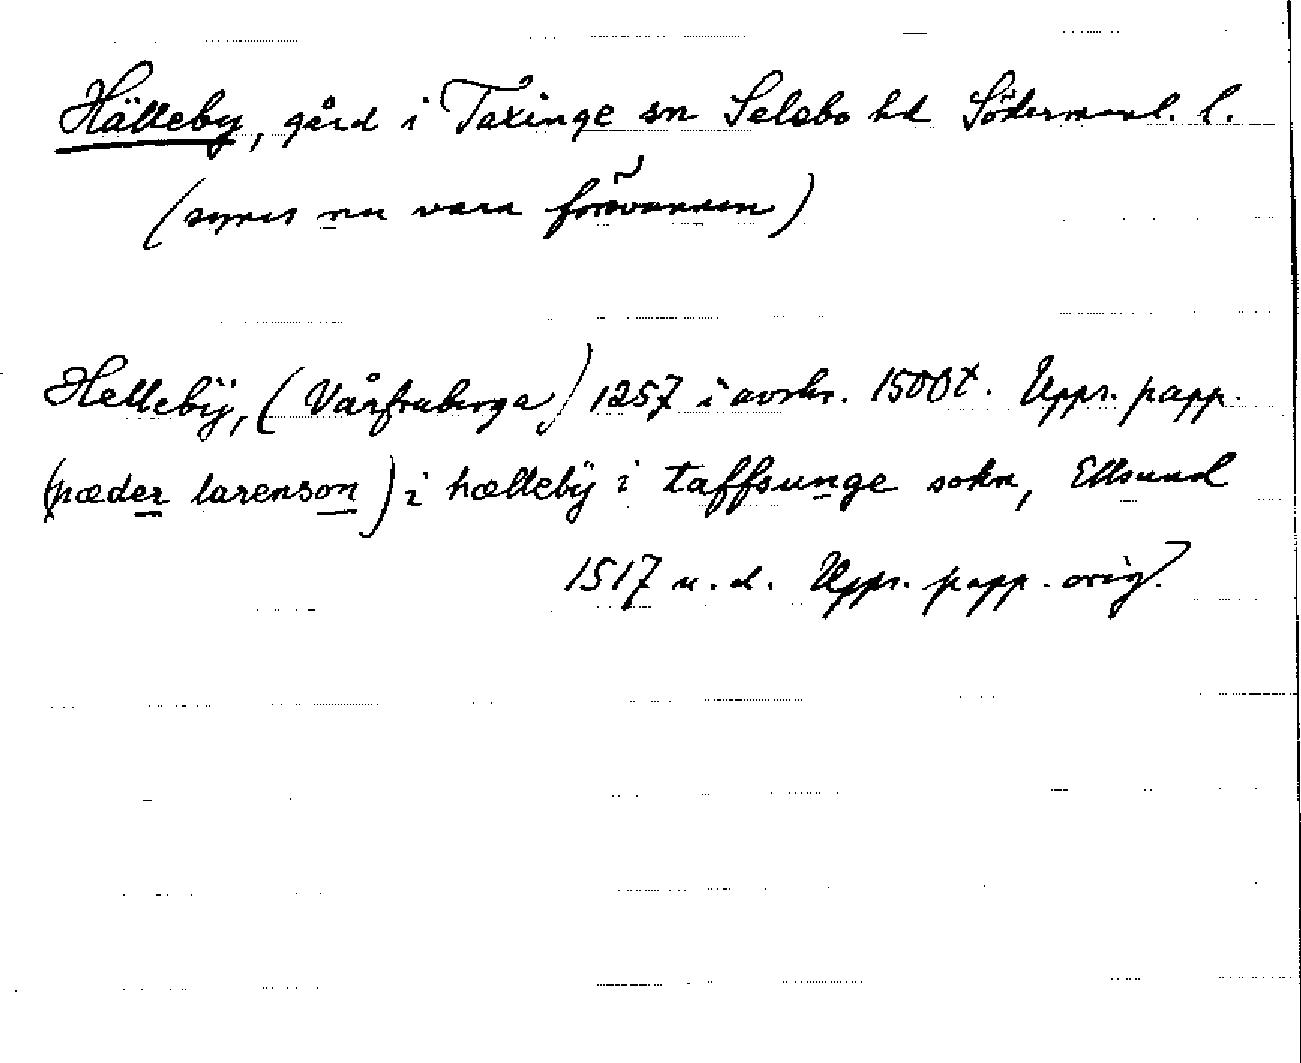 Hälleby, gård i Taxinge sn Selebo hd Södermanl. l.
(synes nu vara försvunnen)
Hellebÿ, (Vårfruberga) 1257 i avskr. 1500t. Upps. papp.
(pæder larenson) i hællebÿ i taffsunge sokn, Ellsund
1517 u. d. Upps. papp. orig.